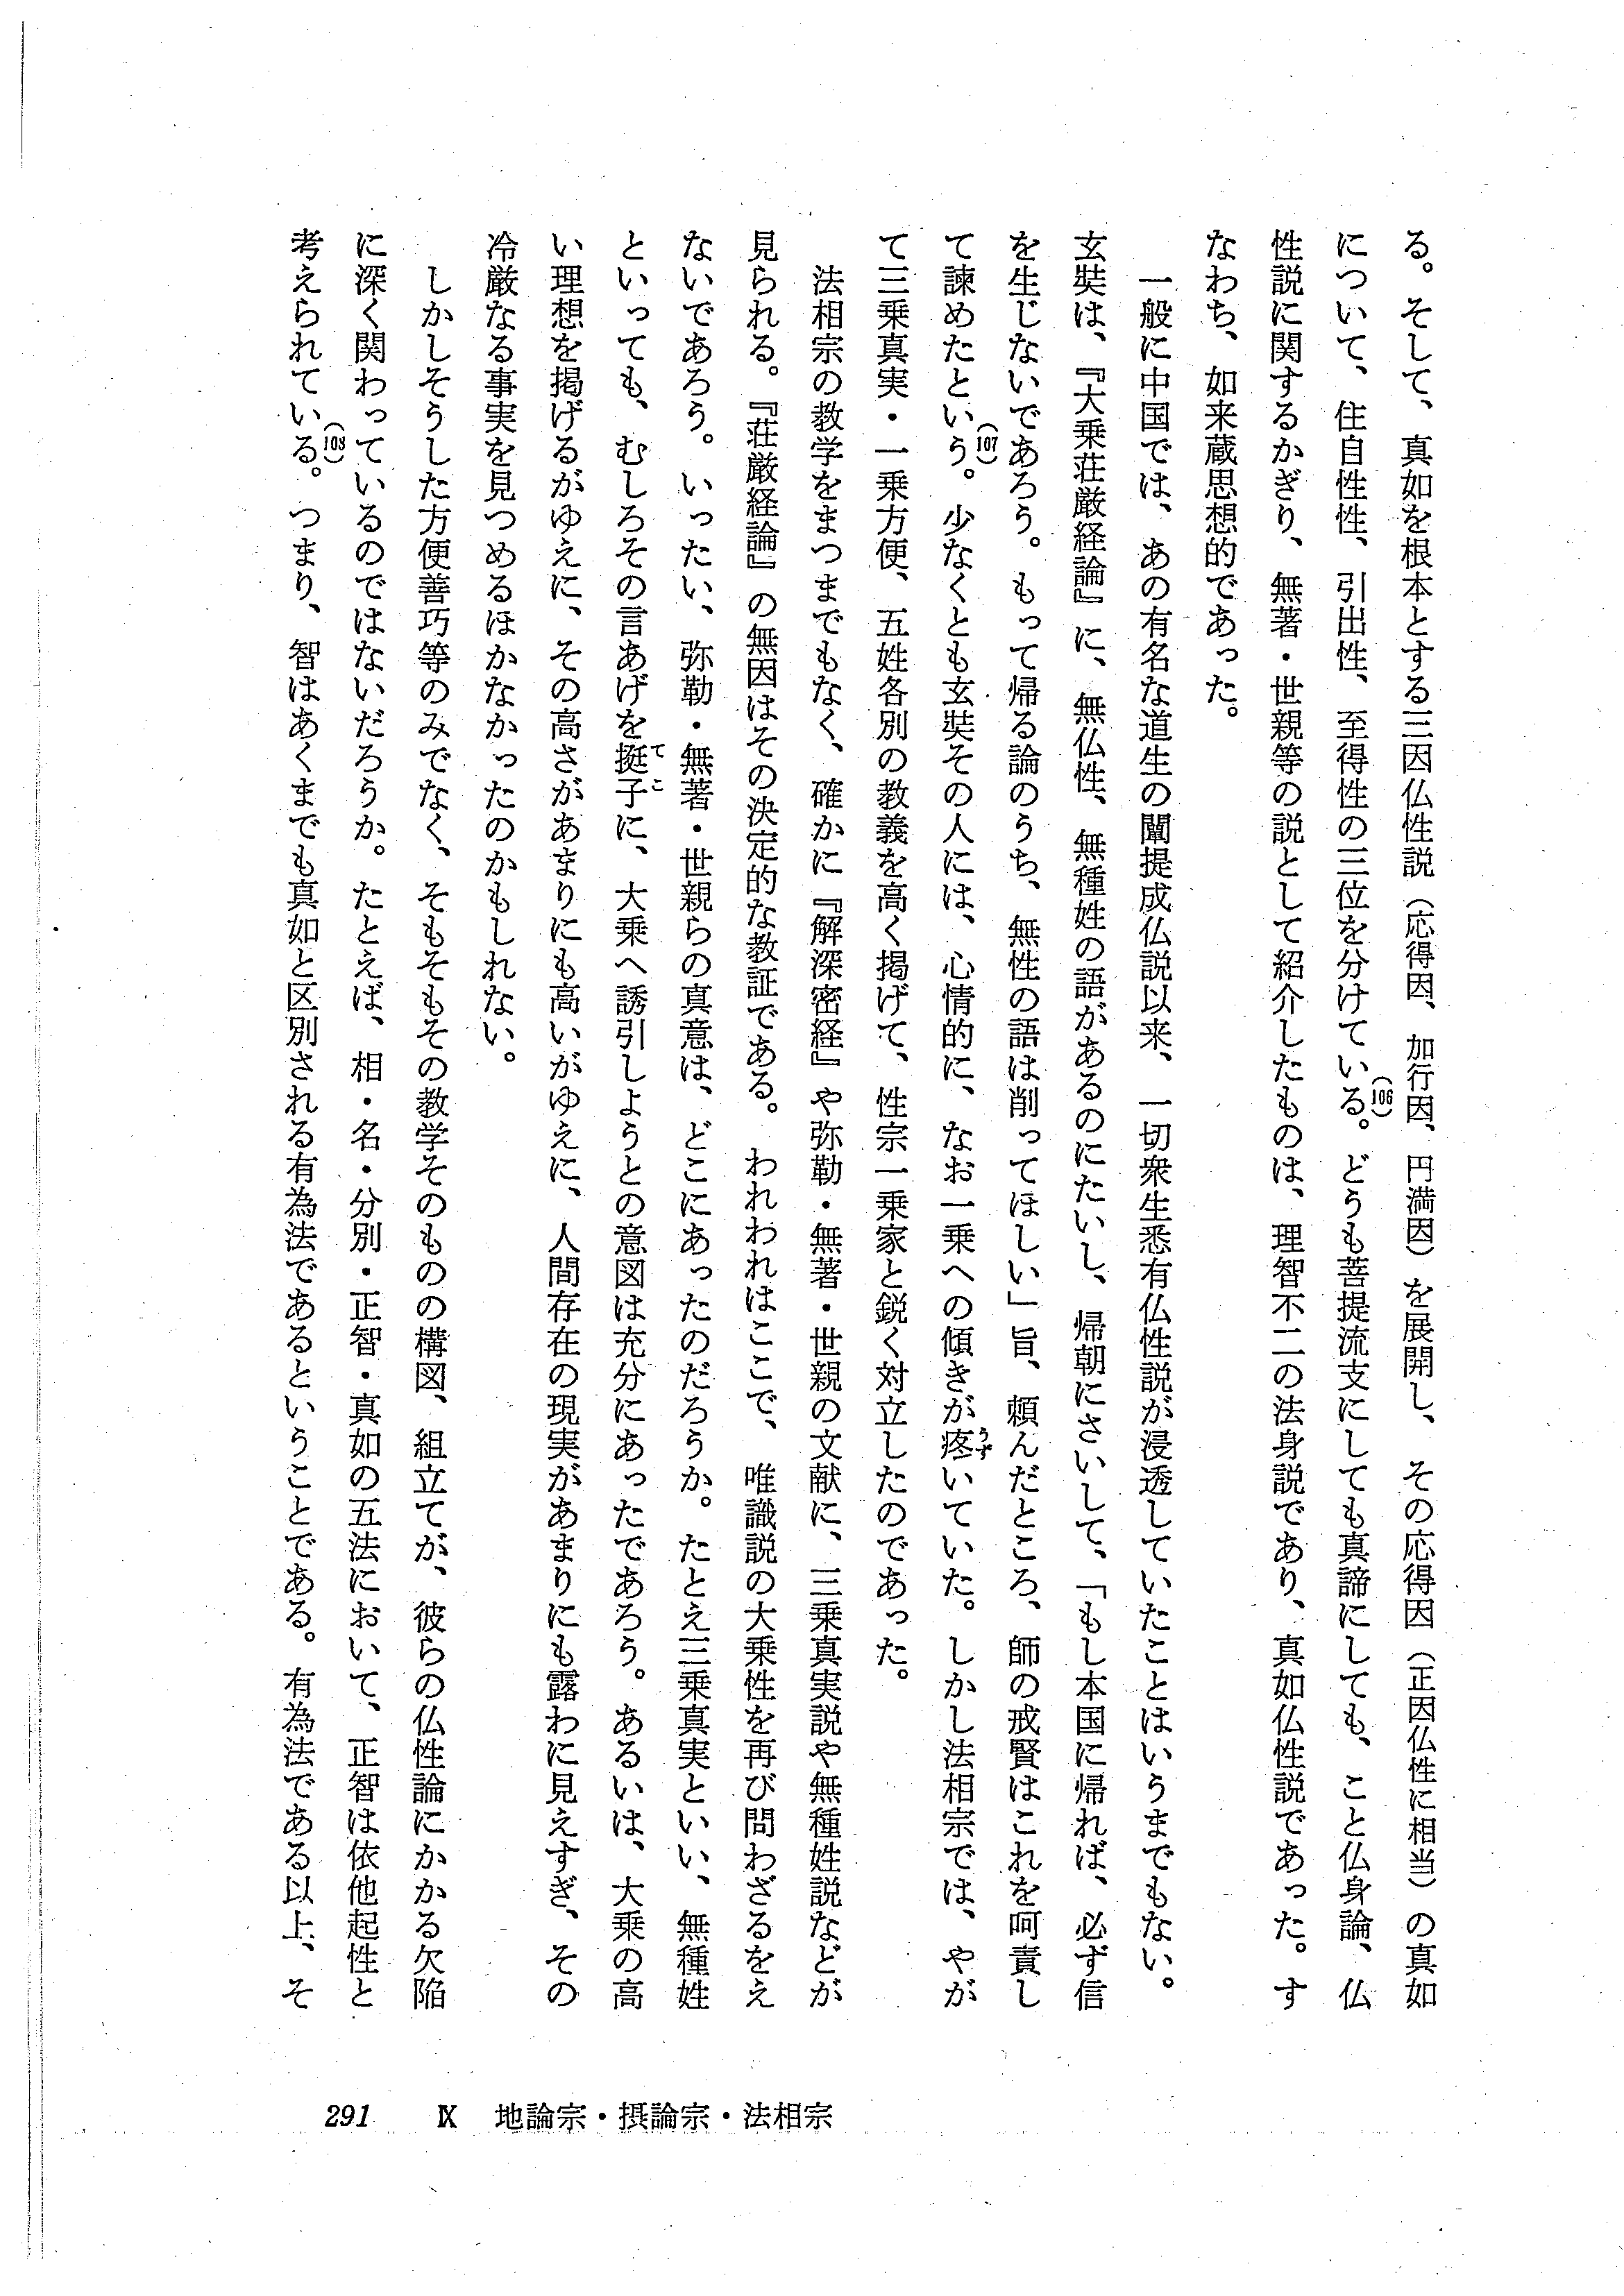 る。そして、真如を根本とする三因仏性説（応得因、加行因、円満因）を展開し、その応得因（正因仏性に相当）の真如
について、住自性性、引出性、至得性の三位を分けている（106）。どうも菩提流支にしても真諦にしても、こと仏身論、仏
性説に関するかぎり、無著・世親等の説として紹介したものは、理智不二の法身説であり、真如仏性説であった。す
なわち、如来蔵思想的であった。
一般に中国では、あの有名な道生の闡提成仏説以来、一切衆生悉有仏性説が浸透していたことはいうまでもない。
玄奘は、『大乗荘厳経論』に、無仏性、無種姓の語があるのにたいし、帰朝にさいして、「もし本国に帰れば、必ず信
を生じないであろう。もって帰る論のうち、無性の語は削ってほしい」旨、頼んだところ、師の戒賢はこれを呵責し
て諫めたという（107）。少なくとも玄奘その人には、心情的に、なお一乗への傾きが疼いていた。しかし法相宗では、やが
て三乗真実・一乗方便、五姓各別の教義を高く掲げて、性宗一乗家と鋭く対立したのであった。
法相宗の教学をまつまでもなく、確かに『解深密経』や弥勒・無著・世親の文献に、三乗真実説や無種姓説などが
見られる。『荘厳経論』の無因はその決定的な教証である。われわれはここで、唯識説の大乗性を再び問わざるをえ
ないであろう。いったい、弥勒・無著・世親らの真意は、どこにあったのだろうか。たとえ三乗真実といい、無種姓
といっても、むしろその言あげを挺子に、大乗へ誘引しようとの意図は充分にあったであろう。あるいは、大乗の高
い理想を掲げるがゆえに、その高さがあまりにも高いがゆえに、人間存在の現実があまりにも露わに見えすぎ、その
冷厳なる事実を見つめるほかなかったのかもしれない。
しかしそうした方便善巧等のみでなく、そもそもその教学そのものの構図、組立てが、彼らの仏性論にかかる欠陥
に深く関わっているのではないだろうか。たとえば、相・名・分別・正智・真如の五法において、正智は依他起性と
考えられている（108）。つまり、智はあくまでも真如と区別される有為法であるということである。有為法である以上、そ
291 Ⅸ 地論宗・摂論宗・法相宗